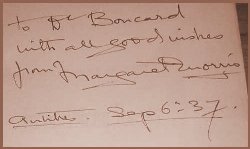 to Dr Boncard
with all good wishes
from Margaret Morris
Antibes. Sep 6: 37.